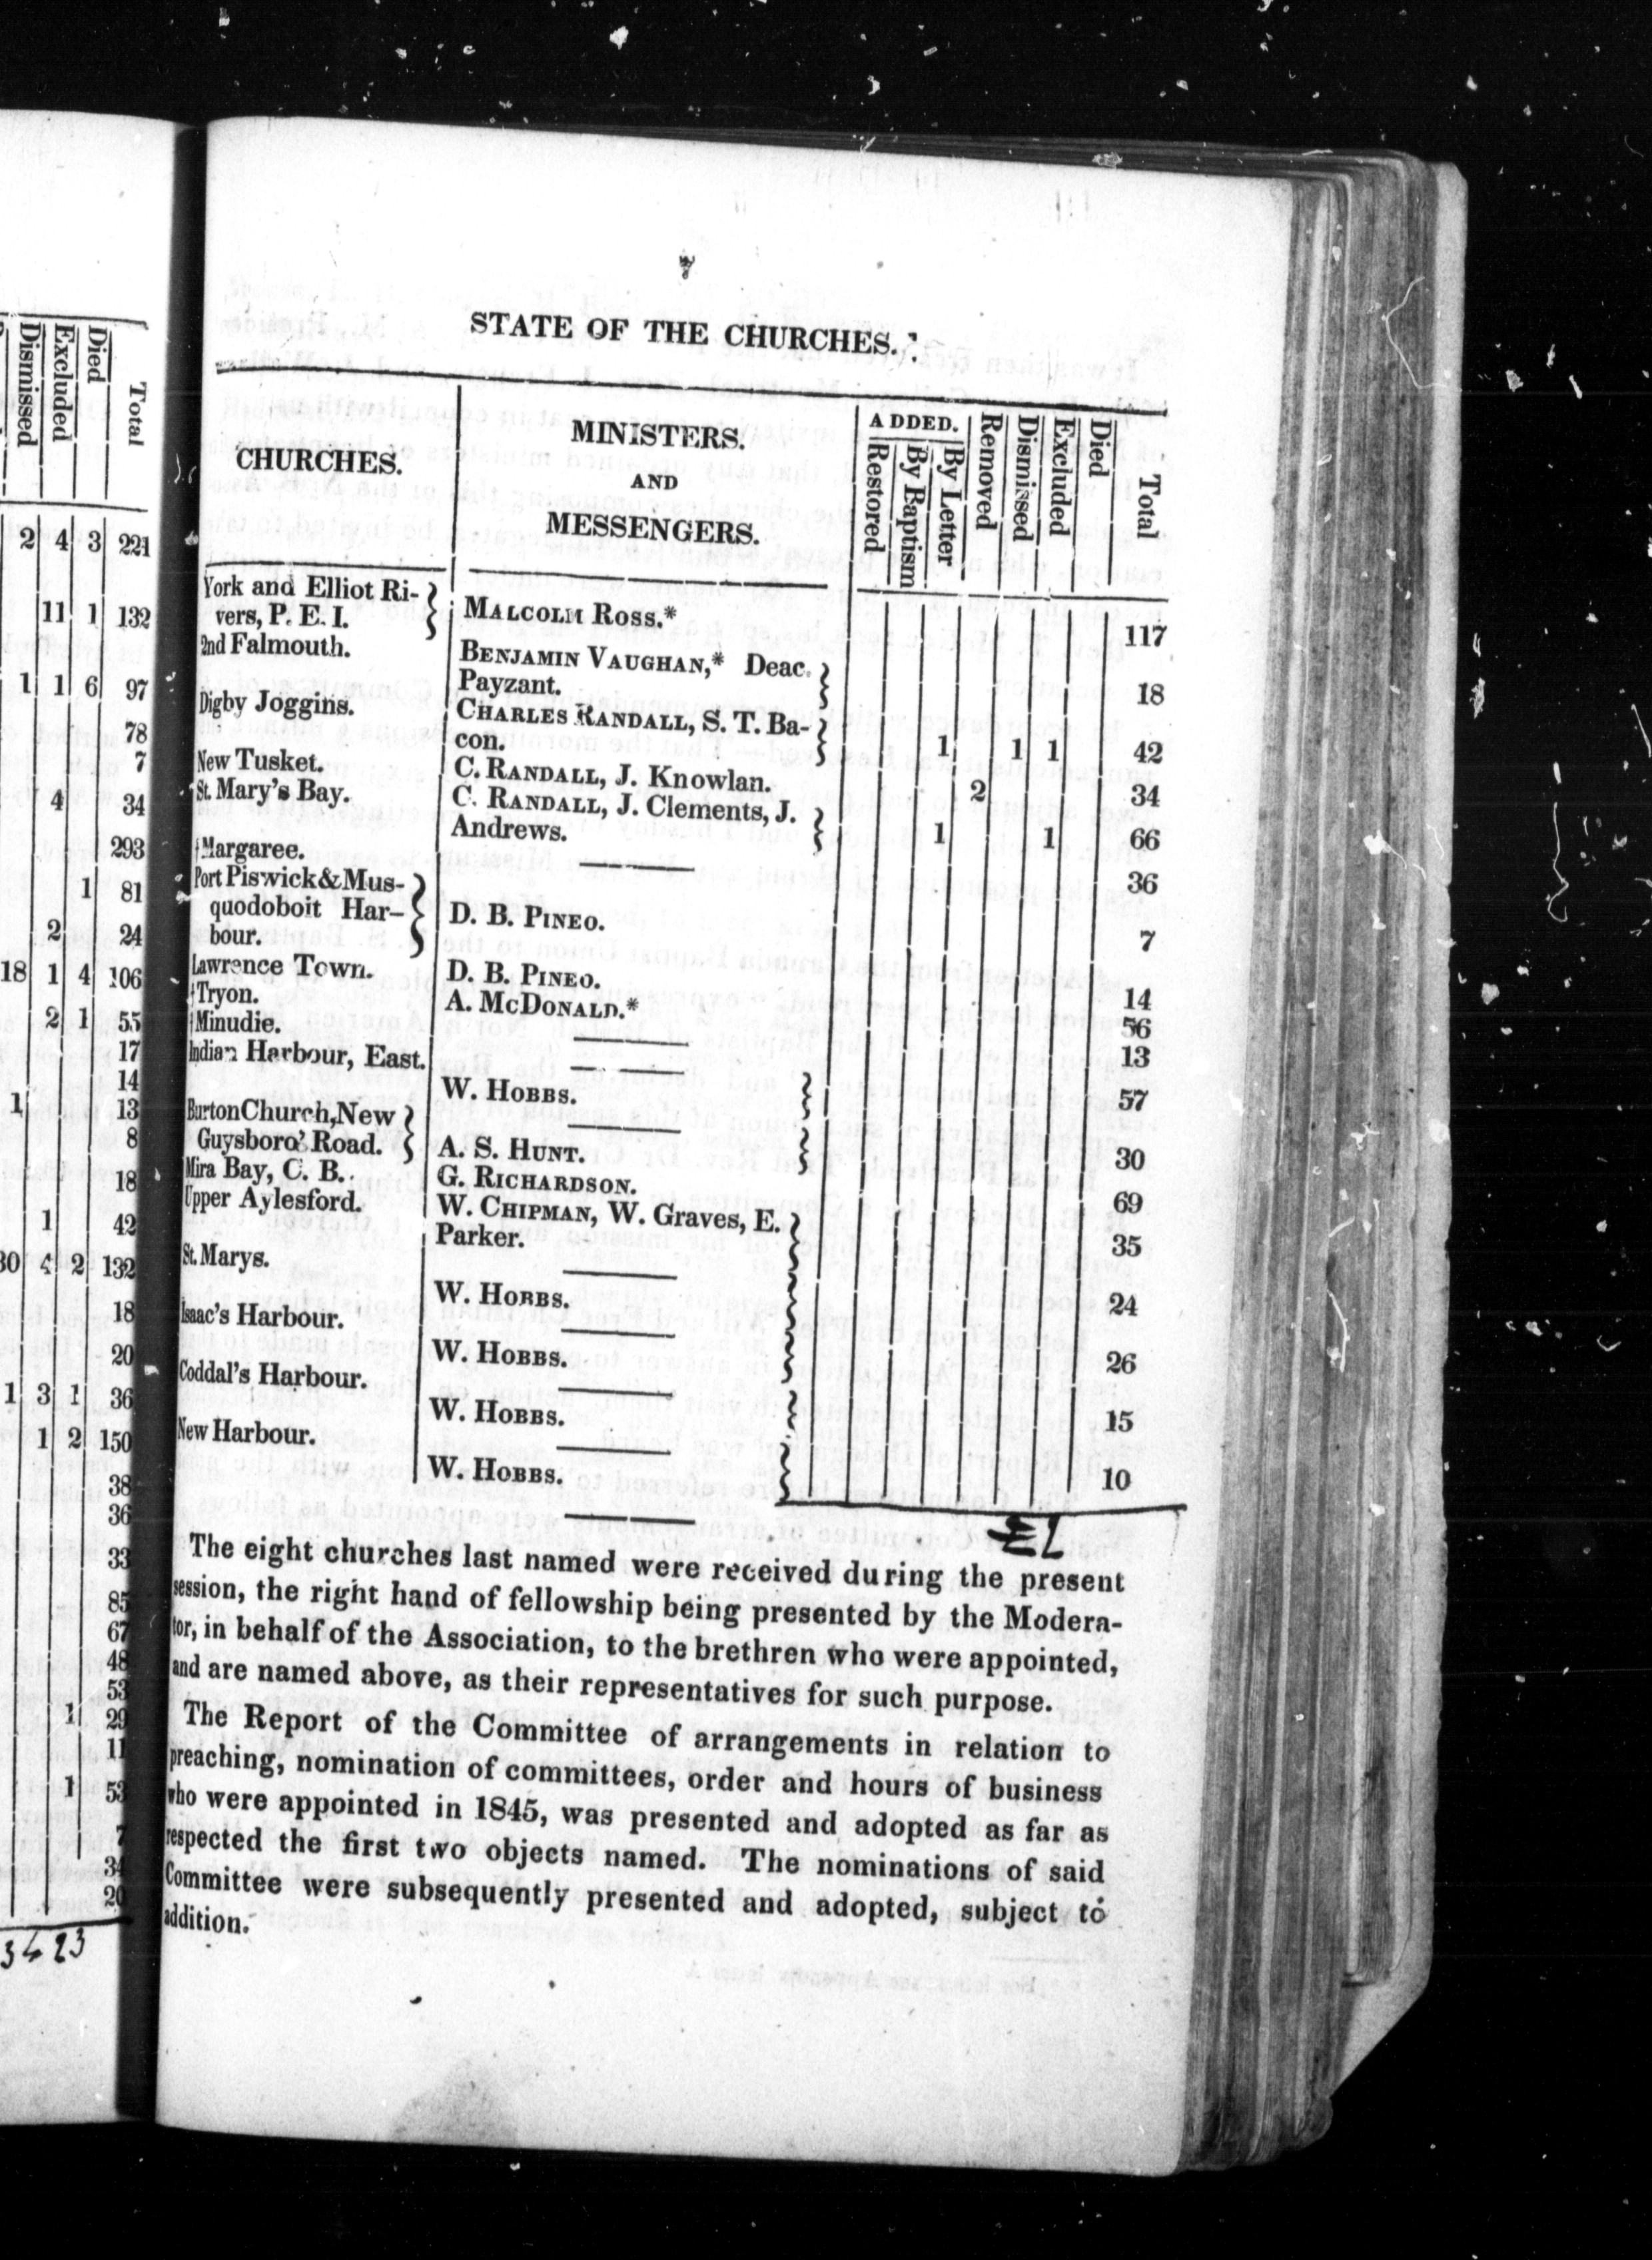 Dismissed Excluded Died Total
2 4 3 221
11 1 132
1 1 6 97
78
7
4 34
293
1 81
2 24
18 1 4 106
2 1 55
17
14
1 13
8
18
1 42
30 4 2 132
18
20
1 3 1 36
1 2 150
38
36
33
85
67
48
53
1 29
11
1 53
7
34
20
3423
7
STATE OF THE CHURCHES.
CHURCHES.
MINISTERS.
AND
MESSENGERS.
ADDED.
Restored By Baptism By Letter Removed Dismissed Excluded Died Total
York and Elliot Ri-
vers, P. E. I. MALCOLM ROSS.* 117
2nd Falmouth. BENJAMIN VAUGHAN,* Deac.
Payzant. 18
Digby Joggins. CHARLES RANDALL, S. T. Ba-
con. 1 1 1 42
New Tusket. C. RANDALL, J. Knowlan. 2 34
St. Mary's Bay. C. RANDALL, J. Clements, J.
Andrews. 1 1 66
†Margaree. —— 36
Port Piswick & Mus-
quodoboit Har-
bour. D. B. PINEO. 7
Lawrence Town. D. B. PINEO. 14
†Tryon. A. McDONALD.* 56
†Minudie. —— 13
Indian Harbour, East. ——
W. HOBBS. 57
Burton Church, New ——
Guysboro' Road. A. S. HUNT. 30
Mira Bay, C. B. G. RICHARDSON. 69
Upper Aylesford. W. CHIPMAN, W. Graves, E.
Parker. 35
St. Marys. ——
W. HOBBS. 24
Isaac's Harbour. ——
W. HOBBS. 26
Coddal's Harbour. ——
W. HOBBS. 15
New Harbour. ——
W. HOBBS. 10
The eight churches last named were received during the present
session, the right hand of fellowship being presented by the Modera-
tor, in behalf of the Association, to the brethren who were appointed,
and are named above, as their representatives for such purpose.
The Report of the Committee of arrangements in relation to
preaching, nomination of committees, order and hours of business
who were appointed in 1845, was presented and adopted as far as
respected the first two objects named. The nominations of said
Committee were subsequently presented and adopted, subject to
addition.